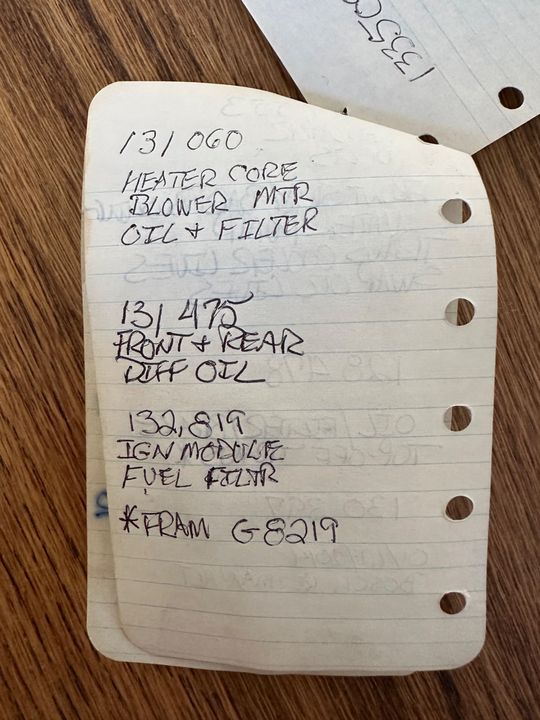 133500
131060
HEATER CORE
BLOWER MTR
OIL + FILTER
131475
FRONT + REAR
DIFF OIL
132,819
IGN MODULE
FUEL FILTR
*FRAM G8219